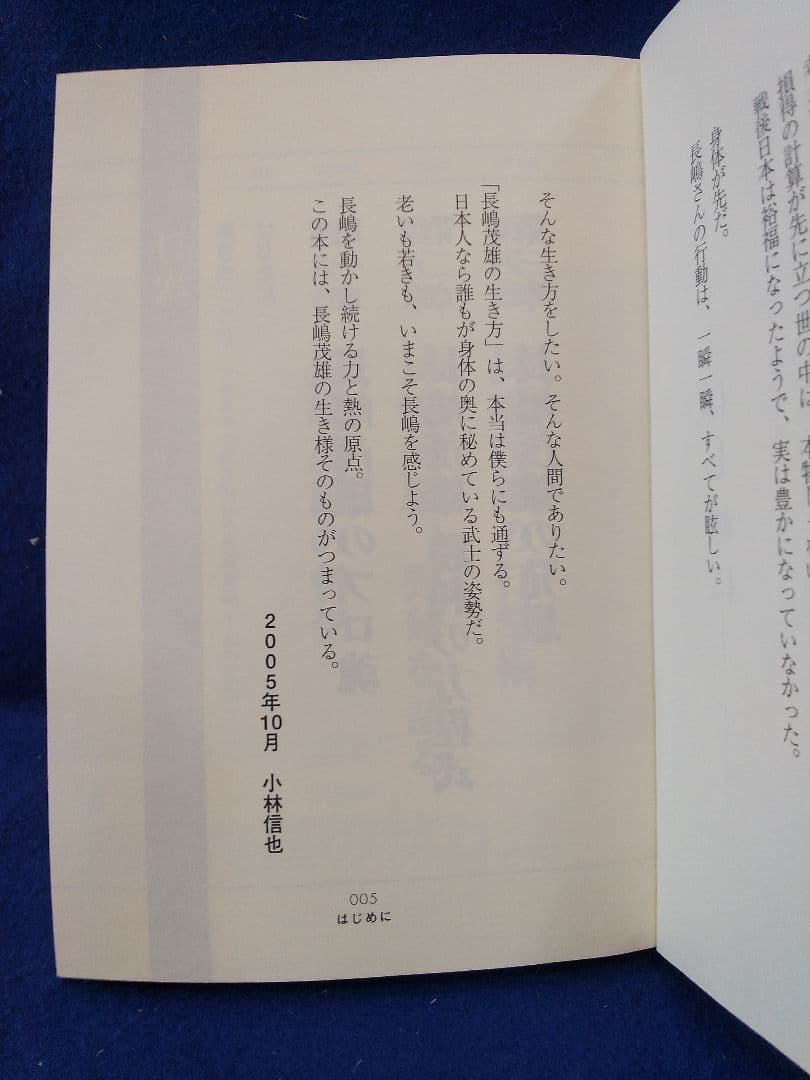 損得の計算が先に立つ世の中は、本物
戦後日本は、裕福になったようで、実は豊かになっていなかった。
身体が先だ。
長嶋さんの行動は、一瞬一瞬、すべてが眩しい。
そんな生き方をしたい。そんな人間でありたい。
「長嶋茂雄の生き方」は、本当は僕らにも通ずる。
日本人なら誰もが身体の奥に秘めている武士の姿勢だ。
老いも若きも、いまこそ長嶋を感じよう。
長嶋を動かし続ける力と熱の原点。
この本には、長嶋茂雄の生き様そのものがつまっている。
2005年10月　小林信也
005
はじめに